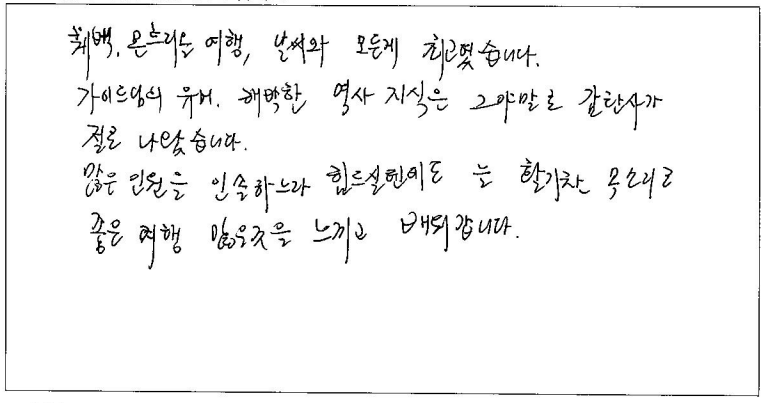 퀘백, 몬츄리올 여행, 날씨와 모든게 최고였습니다.
가이드님의 유머, 해박한 역사 지식은 그야말로 감탄사가
절로 나왔습니다.
많은 인원을 인솔하느라 힘드실텐데도 늘 활기찬 목소리로
좋은 여행 많은것을 느끼고 배워갑니다.